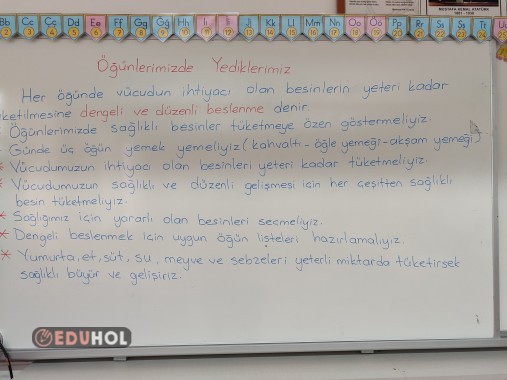 Bb Cc Çç Dd Ee Ff Gg Ğğ Hh Iı İi Jj Kk Ll Mm Nn Oo Öö Pp Rr Ss Şş Tt
MUSTAFA KEMAL ATATÜRK
Öğünlerimizde Yediklerimiz
Her öğünde vücudun ihtiyacı olan besinlerin yeteri kadar
üketilmesine dengeli ve düzenli beslenme denir.
Öğünlerimizde sağlıklı besinler tüketmeye özen göstermeliyiz.
Günde üç öğün yemek yemeliyiz (kahvaltı - öğle yemeği - akşam yemeği)
* Vücudumuzun ihtiyacı olan besinleri yeteri kadar tüketmeliyiz.
* Vücudumuzun sağlıklı ve düzenli gelişmesi için her çeşitten sağlıklı
besin tüketmeliyiz.
* Sağlığımız için yararlı olan besinleri seçmeliyiz.
* Dengeli beslenmek için uygun öğün listeleri hazırlamalıyız.
* Yumurta, et, süt, su, meyve ve sebzeleri yeterli miktarda tüketirsek
sağlıklı büyür ve gelişiriz.
EDUHOL